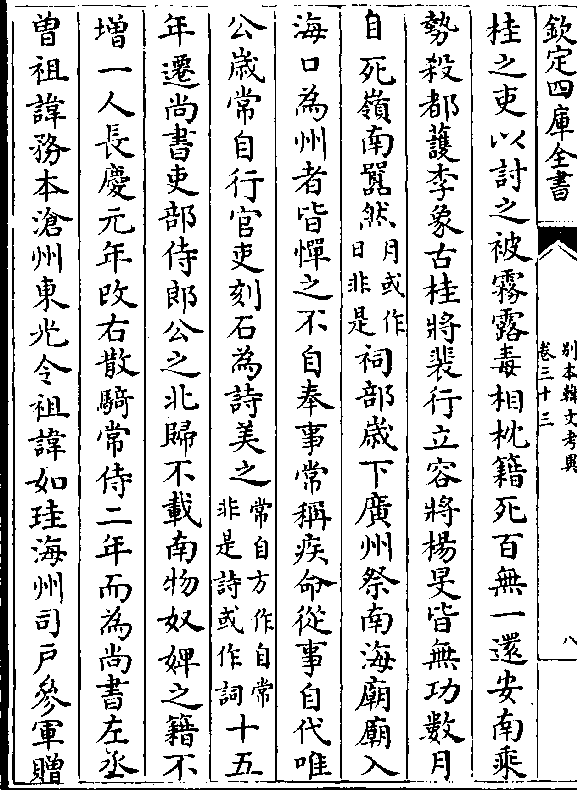 欽定四庫全書
別本韓文考異
卷三十三
八
桂之吏以討之被霧露毒相枕籍死百無一還安南乘
勢殺都䕶李象古桂將裴行立容將楊旻皆無功數月
自死嶺南囂然月或作日非是祠部嵗下廣州祭南海廟廟入
海口為州者皆憚之不自奉事常稱疾命從事自代唯
公嵗常自行官吏刻石為詩美之常自方作自常非是詩或作詞十五
年遷尚書吏部侍郎公之北歸不載南物奴婢之籍不
増一人長慶元年改右散騎常侍二年而為尚書左丞
曽祖諱務本滄州東光令祖諱如珪海州司戸參軍贈